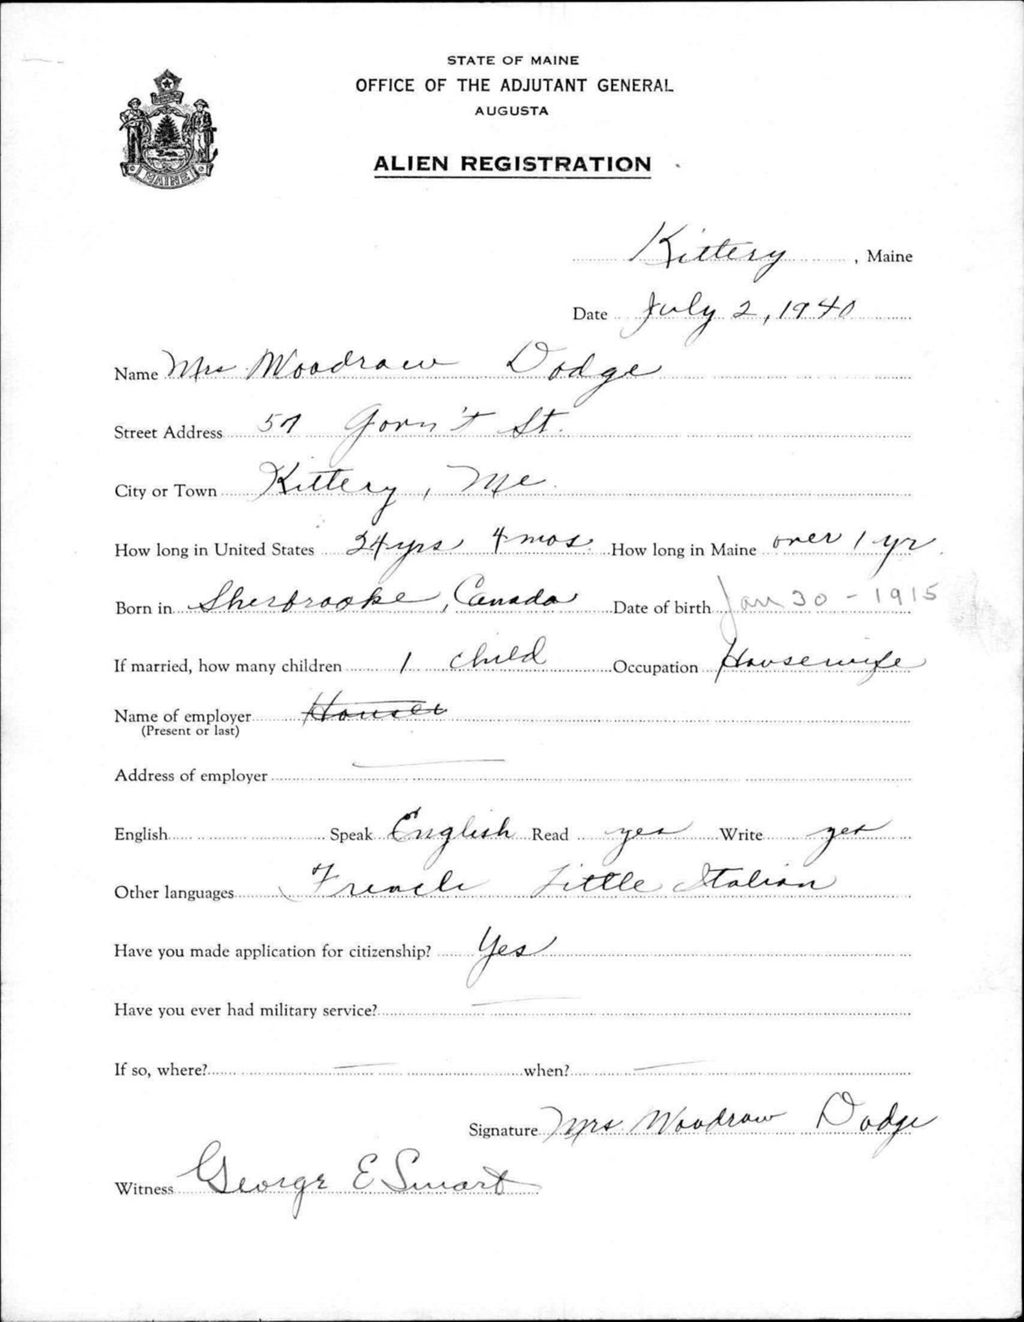 STATE OF MAINE
OFFICE OF THE ADJUTANT GENERAL
AUGUSTA
ALIEN REGISTRATION
MAINE
Kittery, Maine
Date July 2, 1940
Name Mrs Woodrow Dodge
Street Address 57 Gov't St.
City or Town Kittery, Me
How long in United States 24 yrs 4 mos. How long in Maine over 1 yr.
Born in Sherbrooke, Canada Date of birth Jan 30 - 1915
If married, how many children 1 child Occupation Housewife
Name of employer
(Present or last)
Address of employer
English Speak English Read yes Write yes
Other languages French Little Italian
Have you made application for citizenship? Yes
Have you ever had military service?
If so, where? when?
Signature Mrs Woodrow Dodge
Witness George E Swart